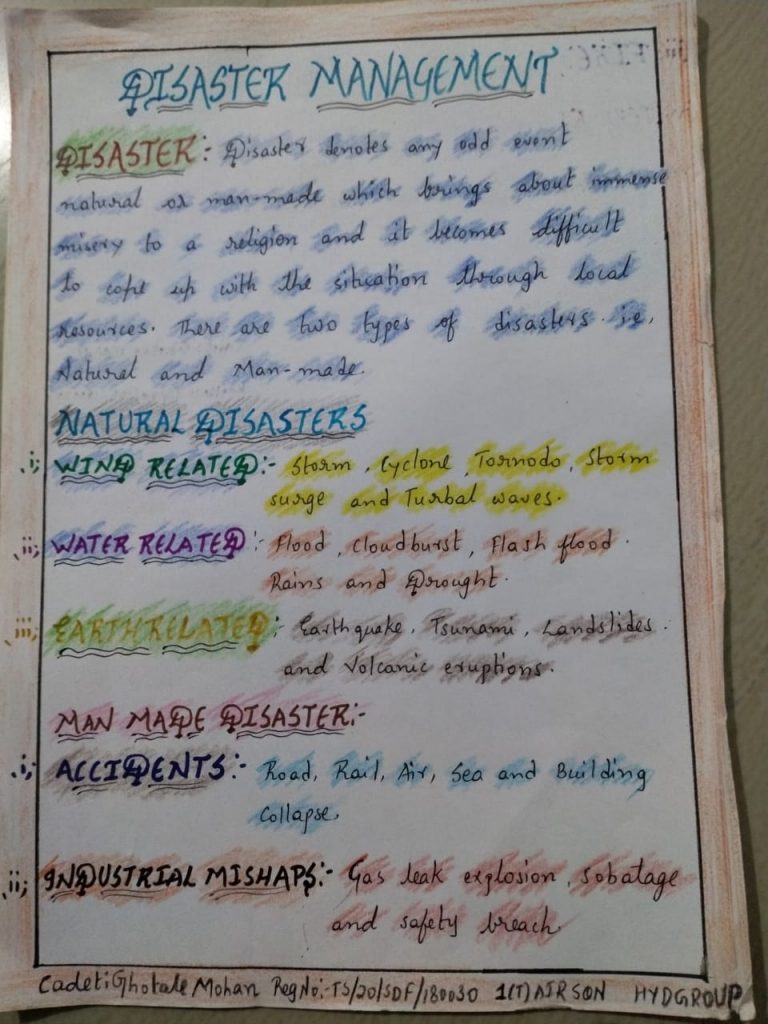 DISASTER MANAGEMENT
DISASTER:- Disaster denotes any odd event
natural or man-made which brings about immense
misery to a religion and it becomes difficult
to cope up with the situation through local
resources. There are two types of disasters. i.e,
Natural and Man-made.
NATURAL DISASTERS
i; WIND RELATED:- Storm, Cyclone, Tornodo, Storm
surge and Turbal waves.
ii; WATER RELATED:- Flood, Cloudburst, Flash flood.
Rains and Drought.
iii; EARTH RELATED:- Earthquake, Tsunami, Landslides.
and Volcanic eruptions.
MAN MADE DISASTER:-
i; ACCIDENTS:- Road, Rail, Air, Sea and Building
Collapse,
ii; INDUSTRIAL MISHAPS:- Gas leak explosion, Sobatage
and safety breach.
Cadet:Ghotale Mohan Reg No:-TS/20/SDF/180030 1(T)AIRSQN HYDGROUP